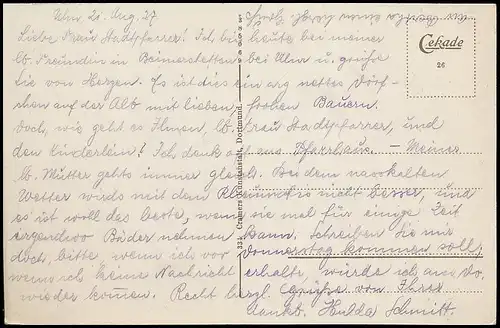 Ulm 20. Aug. 27
Liebe Frau Stadtpfarrer! Ich bin heute bei meiner
lb. Freundin in Beimerstetten bei Ulm u. grüße
Sie von Herzen. Es ist dies ein arg nettes Dörf-
chen auf der Alb mit lieben, frohen Bauern.
Doch, wie geht es Ihnen, lb. Frau Stadtpfarrer, und
den Kinderlein? Ich denk a. ans Pfarrhaus. – Meiner
lb. Mutter gehts immer gleich. Bei dem nasskalten
Wetter wirds mit dem Rheuma nicht besser, und
es ist woll das beste, wenn sie mal für einige Zeit
irgendwo Bäder nehmen kann. Schreiben Sie mir
doch, bitte, wenn ich vor Donnerstag kommen soll,
wenn ich keine Nachricht erhalte, würde ich am Do.
wieder kommen. Recht herzl. Grüße von Ihrer
dankb. Hulda Schmitt.
Cekade
26
334 Cramers Kunstanstalt, Dortmund